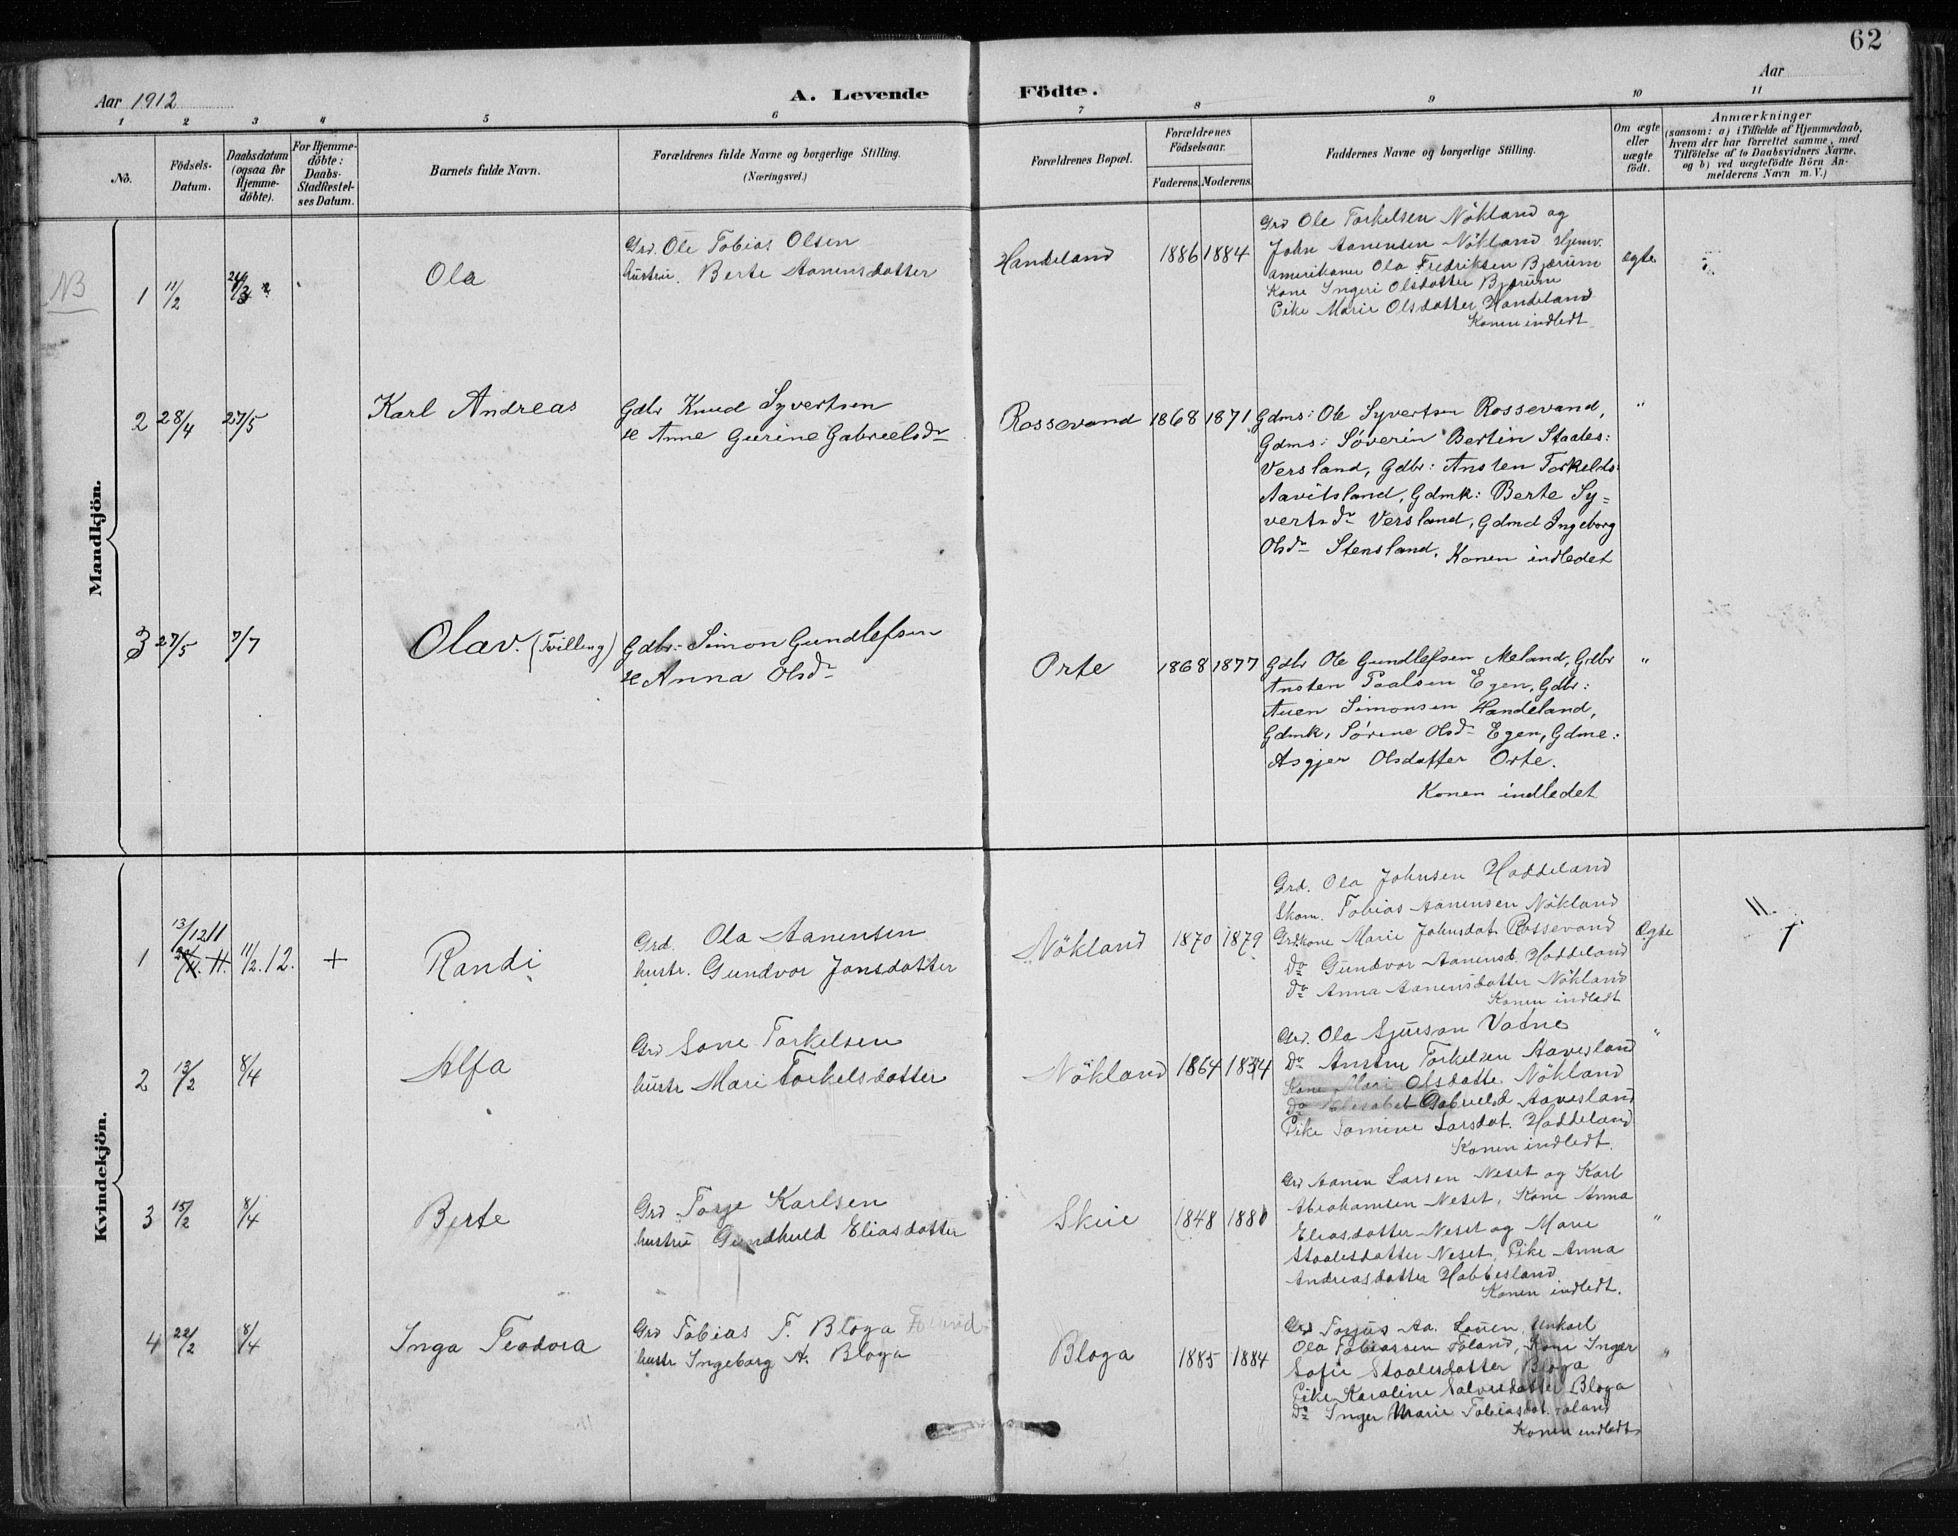 62
Aar 1912
A. Levende Födte.
Aar
1 2 3 4 5 6 7 8 9 10 11
No.
Födsels-Datum.
Daabsdatum (ogsaa for Hjemmedøbte).
For Hjemmedøbte: Daabs-Stadfæstelses Datum.
Barnets fulde Navn.
Forældrenes fulde Navne og borgerlige Stilling.
(Næringsvei.)
Forældrenes Bopæl.
Forældrenes Födselsaar.
Faderens. Moderens.
Faddernes Navne og borgerlige Stilling.
Om ægte eller uægte født.
Anmærkninger
(saasom: a) i Tilfælde af Hjemmedaab,
hvem der har forrettet samme, med
Tilföielse af to Daabsvidners Navne,
og b) ved uægtefödte Börn Anmelderens Navn m. V.)
Mandkjön.
NB
1 11/2
Ola
Grd. Ole Tobias Olsen
hustru. Berte Aanensdatter
Handeland 1886 1884
Grd Ole Torkelsen Nökland og
John Aanensen Nökland Hjemv.
amerikaner Ola Fredriksen Bjærum
Kone Ingeri Olsdatter Bjærum
Pike Marie Olsdatter Handeland
Konen indledt
ægte
2 28/4 27/5
Karl Andreas
Gdbr Knud Syvertsen
H Anne Gurine Gabrielsdr
Rossevand 1868 1871
Gdms: Ole Syvertsen Rossevand,
Gdms: Söverin Bertin Staales:
Versland, Gdbr: Ansten Torkelds:
Aavitsland, Gdmk: Berte Sy=
vertsdr Versland, Gdmd Ingeborg
Olsdr Stensland. Konen indledet
"
3 27/5 7/7
Olav. (Tvilling)
Gdbr: Simon Gundlefsen
H Anna Olsdr
Orte 1868 1877
Gdbr Ole Gundlefsen Meland, Gdbr
Ansten Paalsen Egen, Gdbr:
Auen Simonsen Handeland,
Gdmk, Sörine Olsdr Egen, Gdme:
Asgjer Olsdatter Orte.
Konen indledet
"
Kvindekjön.
1 13/12 11 11/2.12. +
Randi
Grd. Ola Aanensen
hustr. Gundvor Jonsdatter
Nökland 1870 1879
Grd. Ola Johnsen Haddeland
Skom. Tobias Aanensen Nökland
Grdkone Marie Johnsdat. Rossevand
Do Gundvor Aanensd. Haddeland
Do Anna Aanensdatter Nökland
Konen indledt
ægte
2 13/2 8/4
Alfa
Grd Sone Torkelsen
hustr Mari Torkelsdatter
Nökland 1864
Grd. Ola Sjurson Vadne
Do Ansten Torkelsen Aavesland
Kone Mari Olsdatte Nökland
Do Gabrielsd Aavesland
Pike Larsdat. Haddeland
Konen indledt.
"
3 15/2 8/4
Berte
Grd Torje Karlsen
hustru Gundhuld Eliasdatter
Skeie 1848
Grd Aanen Larsen Neset og Karl
Abrahamsen Neset, Kone Anna
Eliasdatter Neset og Marie
Staalesdatter Neset, Pike Anna
Andreasdatter Habbesland.
Konen indledt.
"
4 22/2 8/4
Inga Teodora
Grd Tobias T. Bloga
hustr Ingeborg A. Bloga
Bloga 1885 1884
Grd Torjus Aa. Louen, Unkarl
Ola Tobiassen Foland, Kone Inger
Sofie Staalesdatter Bloga
Pike Karoline Salvesdatter Bloga
Do Inger Marie Tobiasdat. Foland
Konen indledt
"